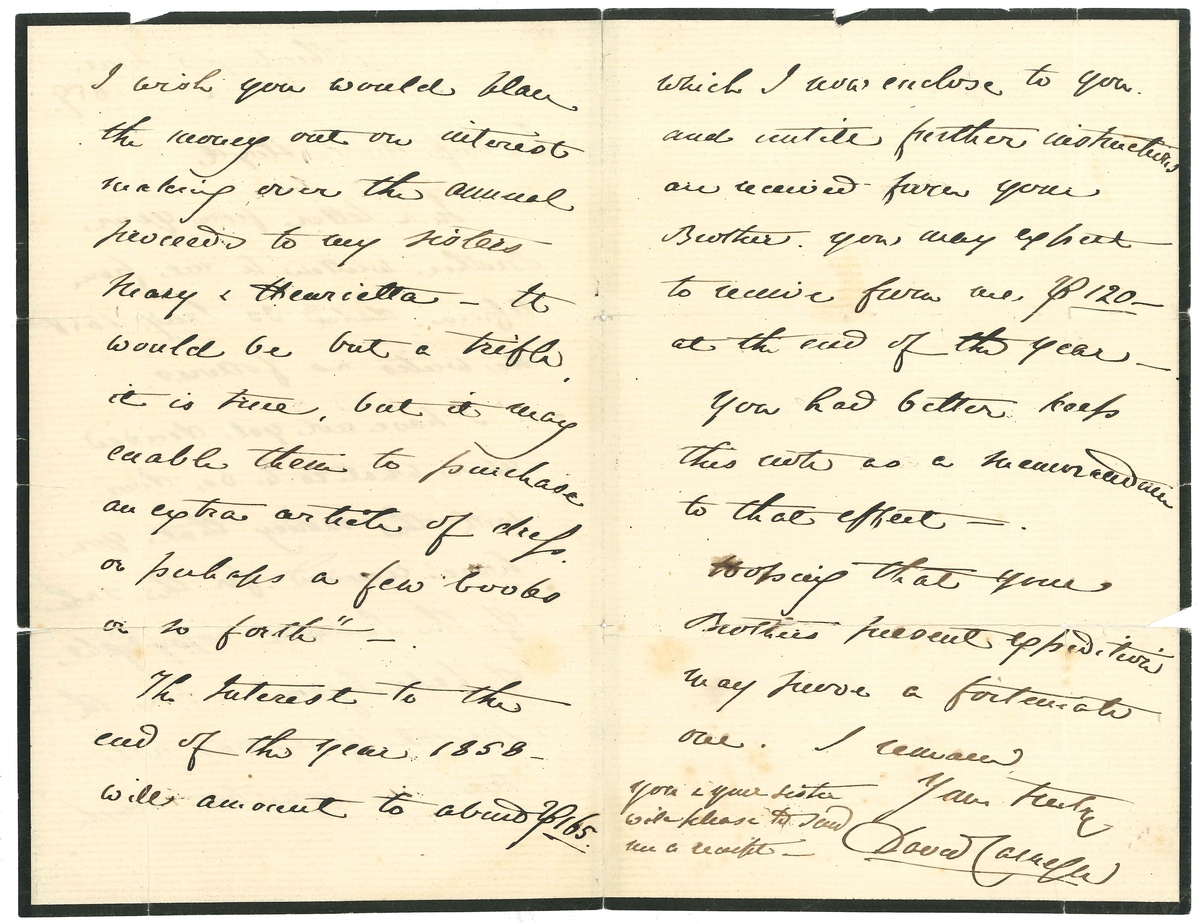 I wish you would place
the money out on interest
making over the annual
proceeds to my sisters
Mary & Henrietta – it
would be but a trifle,
it is true, but it may
enable them to purchase
an extra article of dress
or perhaps a few books
or so forth" –
The Interest to the
end of the year 1858 –
will amount to about $165.
which I now enclose to you.
and until further instructions
are received from your
Brother. you may expect
to receive from me $120 –
at the end of the year –
You had better keep
this note as a memorandum
to that effect – .
Hoping that your
Brothers present expedition
may prove a fortunate
one. I remain
Yours truly
David Carnegie
you & your sister
will please to send
me a receipt –